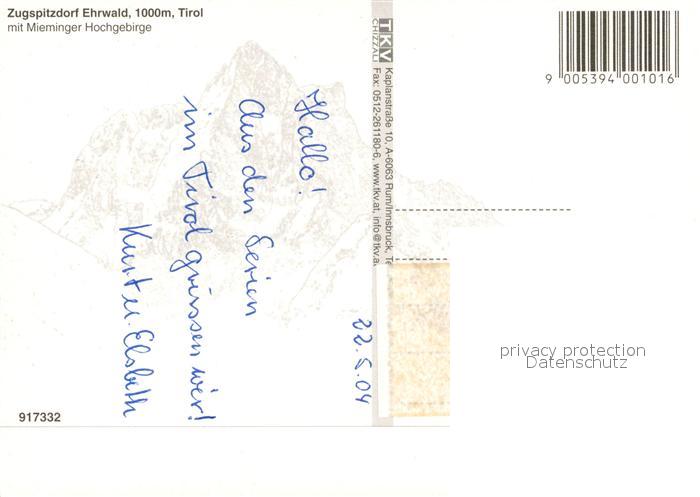 Zugspitzdorf Ehrwald, 1000m, Tirol
mit Mieminger Hochgebirge
TKV
CHIZZALI
Kaplanstraße 10, A-6063 Rum/Innsbruck, Te
Fax: 0512-261180-6, www.tkv.at, info@tkv.a
9 005394 001016
22.5.04
Hallo!
Aus den Ferien
im Tirol grüssen wir!
Kurt u. Elsbeth
privacy protection
Datenschutz
917332